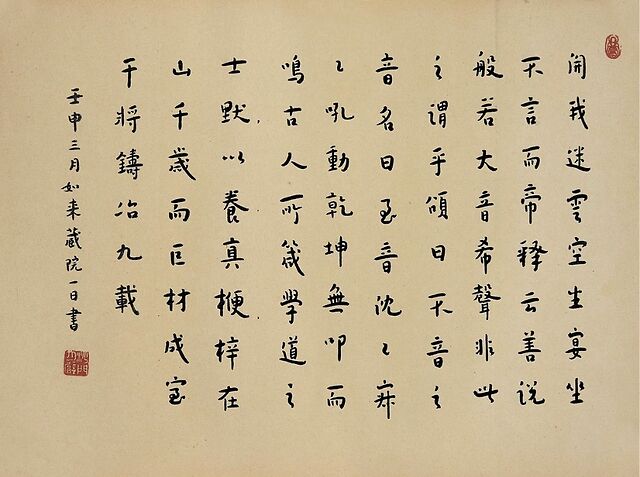 開我迷雲空生宴坐
无言而帝釋云善說
般若大音希聲非此
之謂乎頌曰无音之
音名曰至音沈〻寂
〻吼動乾坤無叩而
鳴古人所箴學道之
士默以養真楩梓在
山千歲而巨材成室
干將鑄冶九載
壬申三月如來藏院一日書